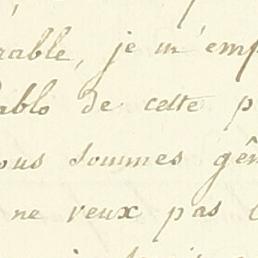 rable, je m'emp
ablo de cette p
ous sommes gên
ne veux pas